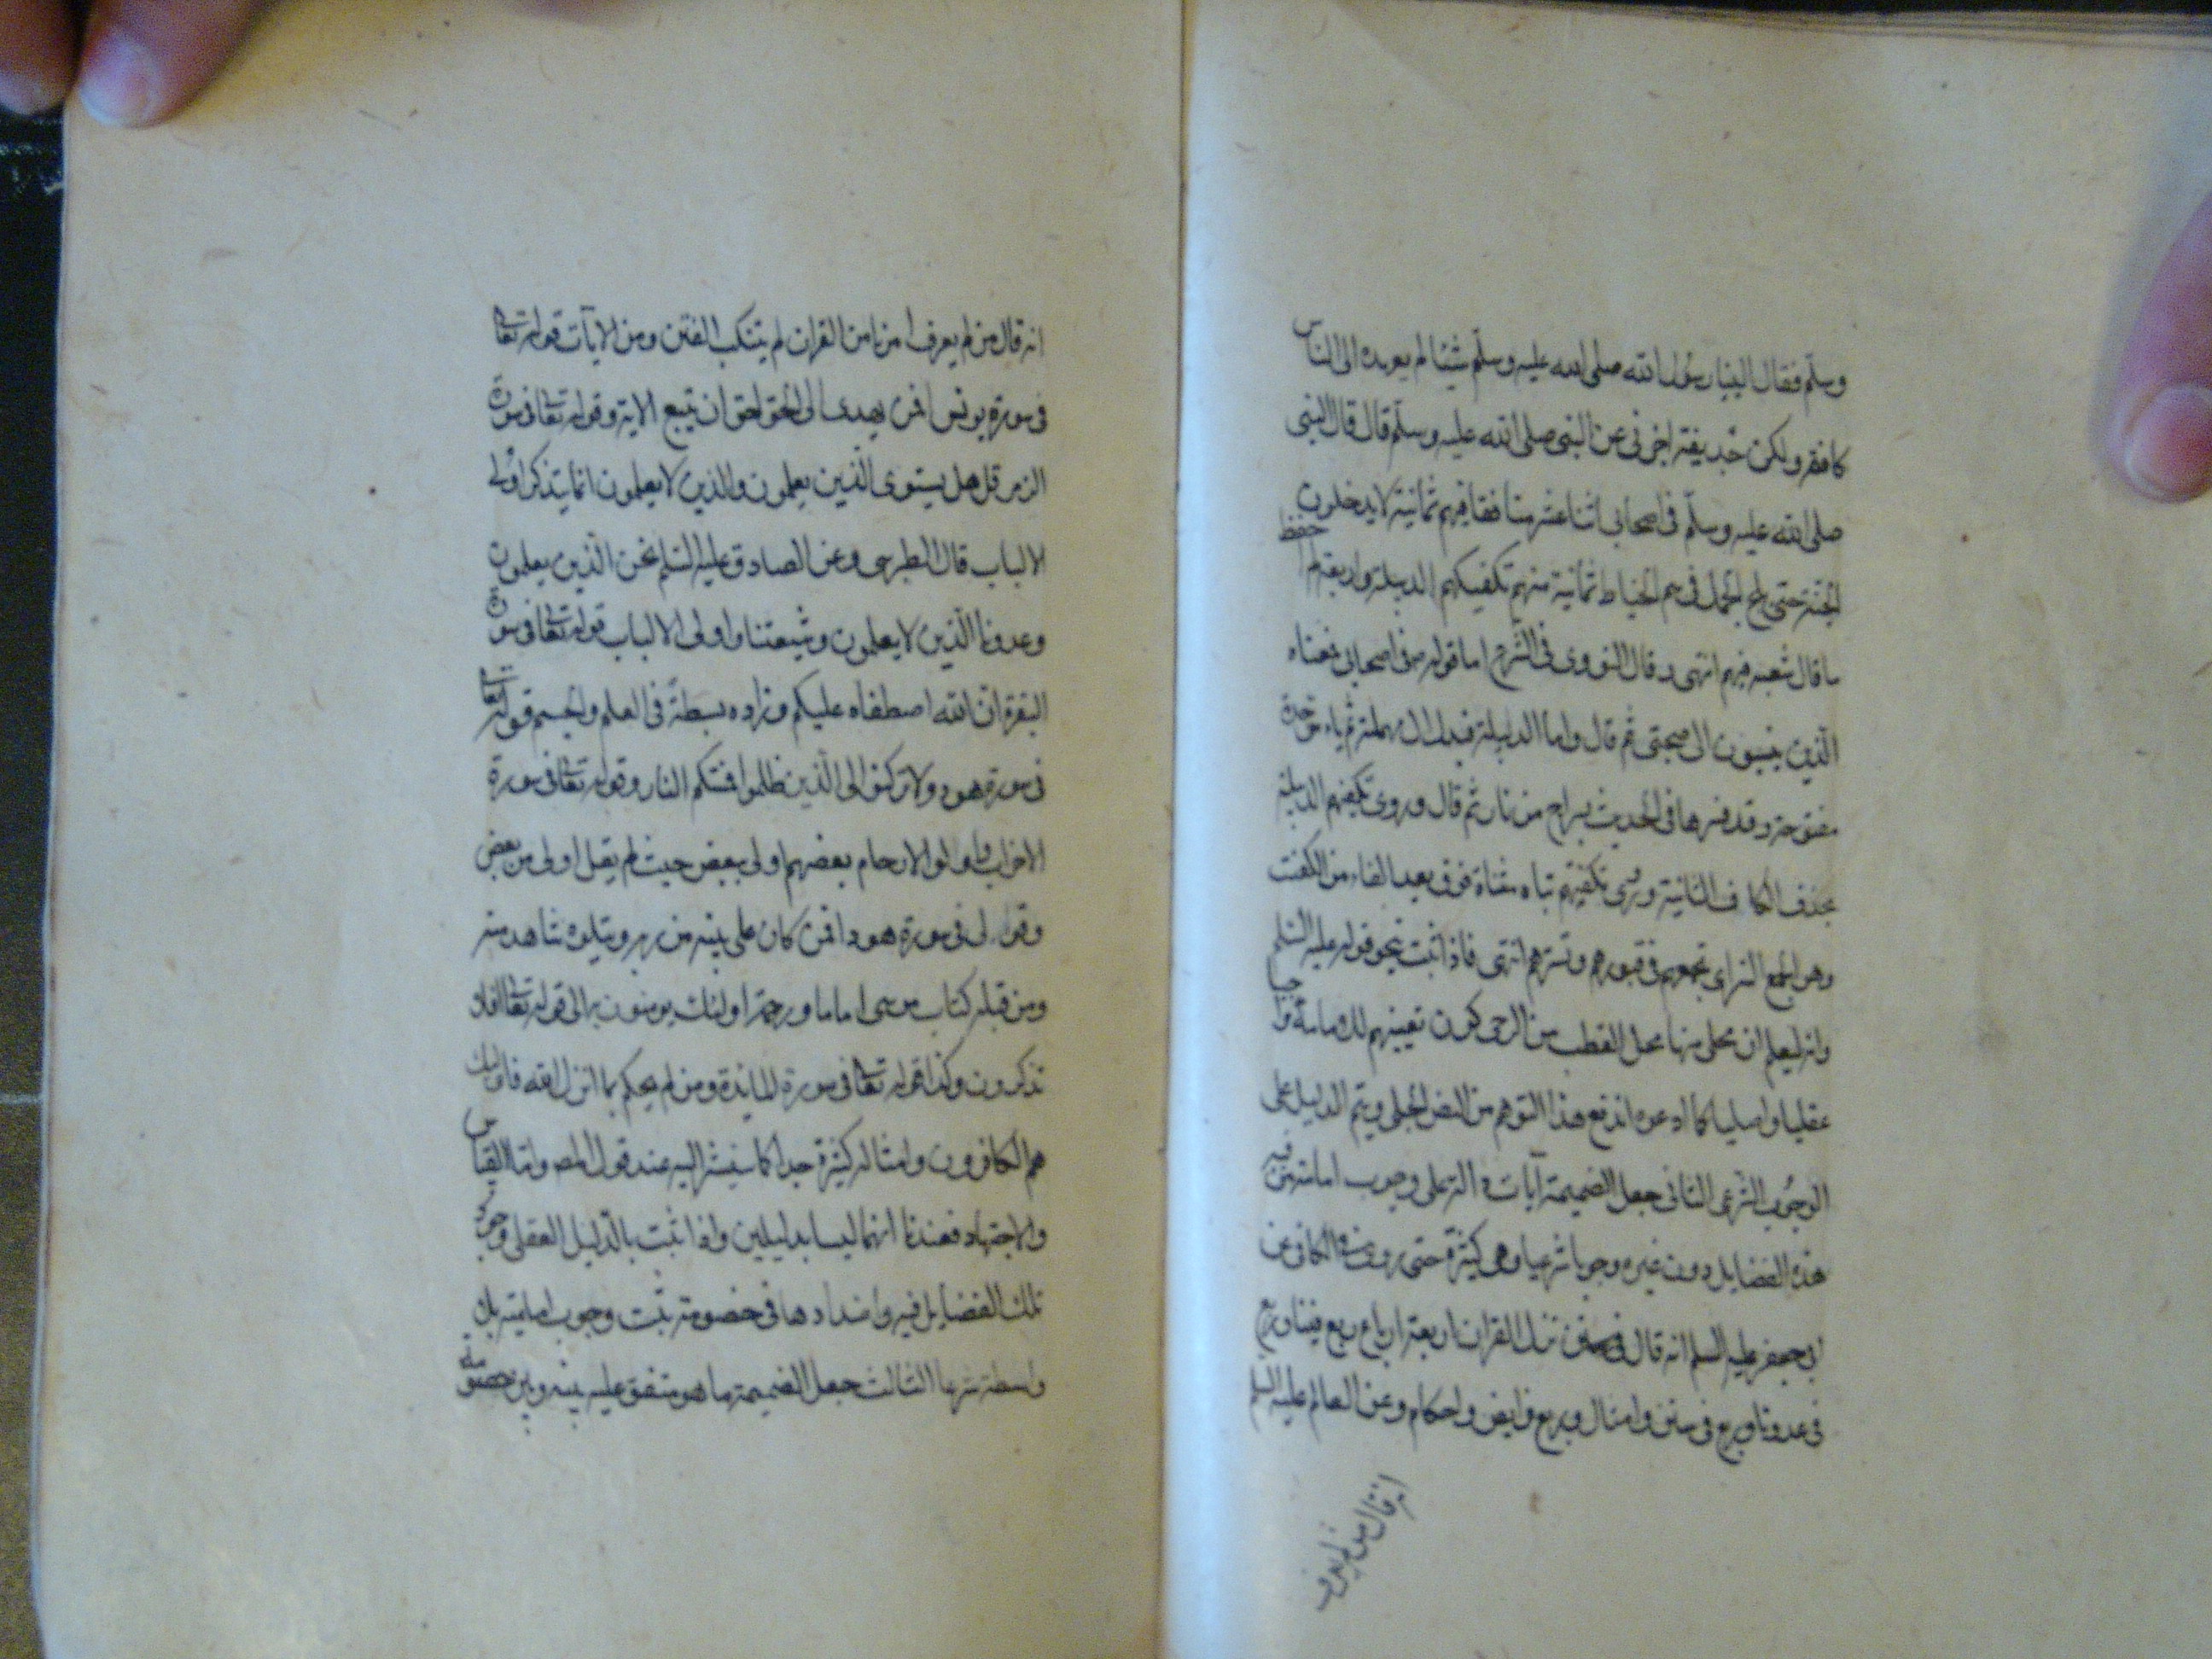 وسلم فقال الينا رسول الله صلى الله عليه وسلم شيئا لم يعهده الى الناس
كافة ولكن حذيفة اخبرنى عن النبى صلى الله عليه وسلم قال قال النبى
صلى الله عليه وسلم فى اصحابى اثنا عشر منافقا فيهم ثمانية لا يدخلون
الجنة حتى يلج الجمل فى سم الخياط ثمانية منهم تكفيكهم الدبيلة واربعة لم احفظ
ما قال شعبه فيهم انتهى وقال النووى فى الشرح اما قوله ص فى اصحابى فمعناه
الذين ينسبون الى صحبتى ثم قال واما الدبيلة فبدال مهملة ثم باء موحدة
مفتوحة وقد فسرها فى الحديث بسراج من نار ثم قال وروى تكفيهم الدبيلة
بحذف الكاف الثانية وروى تكفتهم بتاء مثناة فوق بعد الفاء من الكفت
وهو الجمع الستر اى تجمعهم فى قبورهم وتسترهم انتهى فاذا ثبت بنحو قوله عليه السلم
وانه ليعلم ان محلى منها محل القطب من الرحى كون تعيينهم للامامة واجبا
عقليا واصليا كما ادعوه اندفع هذا التوهم من النص الجلى ويتم الدليل على
الوجوب الشرعى الثانى جعل الضميمة آيات دالة على وجوب امامة من فيه
هذه الفضايل دون غيره وجوبا شرعيا وهى كثيرة حتى روى فى الكافى عن
ابى جعفر عليه السلم انه قال نزل القران اربعة ارباع ربع فينا وربع
فى عدونا وربع فى سنن وامثال وربع فرايض واحكام وعن العالم عليه السلم
انه قال من لم يعرف
انه قال من لم يعرف امرنا من القران لم يتنكب الفتن ومن الايات قوله تعالى
فى سورة يونس افمن يهدى الى الحق احق ان يتبع الاية وقوله تعالى فى سورة
الزمر قل هل يستوى الذين يعلمون والذين لا يعلمون انما يتذكر اولو
الالباب قال الطبرسى وعن الصادق عليه السلم نحن الذين يعلمون
وعدونا الذين لا يعلمون وشيعتنا اولى الالباب قوله تعالى فى سورة
البقرة ان الله اصطفاه عليكم وزاده بسطة فى العلم والجسم قوله تعالى
فى سورة هود ولا تركنوا الى الذين ظلموا فتمسكم النار وقوله تعالى فى سورة
الاحزاب واولوا الارحام بعضهم اولى ببعض حيث لم يقل اولى من بعض
وقوله فى سورة هود افمن كان على بينه من ربه ويتلوه شاهد منه
ومن قبله كتاب موسى اماما ورحمة اولئك يومنون به الى قوله تعالى افلا
تذكرون وكذا قوله تعالى فى سورة المايدة ومن لم يحكم بما انزل الله فاولئك
هم الكافرون وامثاله كثيرة جدا كما سنشير اليه عند قول المص واما القياس
والاجتهاد فعندنا انهما ليسا بدليلين واذا ثبت بالدليل العقلى وجود
تلك الفضايل فيه واضدادها فى خصومه ثبت وجوب امامته بلا
واسطة شرعا الثالث جعل الضميمة ما هو متفق عليه بينه وبين خصومه